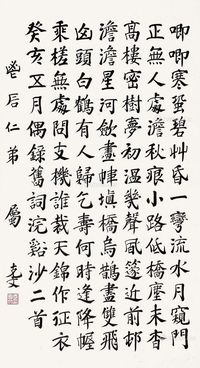 唧唧寒蛩碧艸昏一彎流水月窺門
正無人處澹秋痕小路低橋塵未杳
高樓密樹夢初溫幾聲風篴近前邨
澹澹星河斂畫幃填橋烏鵲畫雙飛
頭白鶴有人歸乞壽何時逢降幄
乘槎無處問支機誰裁天錦作征衣
癸亥五月偶錄舊詞浣谿沙二首
仁弟 屬 克文